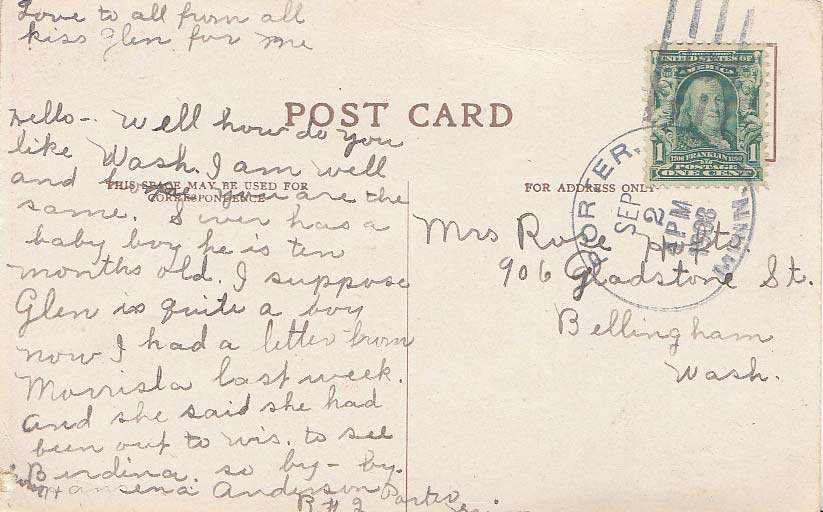 Love to all from all
kiss Glen for me
Hello - Well how do you
like Wash. I am well
and hope you are the
same. Siver has a
baby boy he is ten
months old. I suppose
Glen is quite a boy
now I had a letter from
last week.
and she said she had
been out to Wis. to see
Berdina. so by - by.
Anderson Porter
R # 2
POST CARD
THIS SPACE MAY BE USED FOR
CORRESPONDENCE
FOR ADDRESS ONLY
UNITED STATES OF
AMERICA
1 1706 FRANKLIN 1790 1
POSTAGE
ONE CENT
PORTER, MINN.
SEP
2
4 PM
1908
Mrs Rose
906 Gladstone St.
Bellingham
Wash.